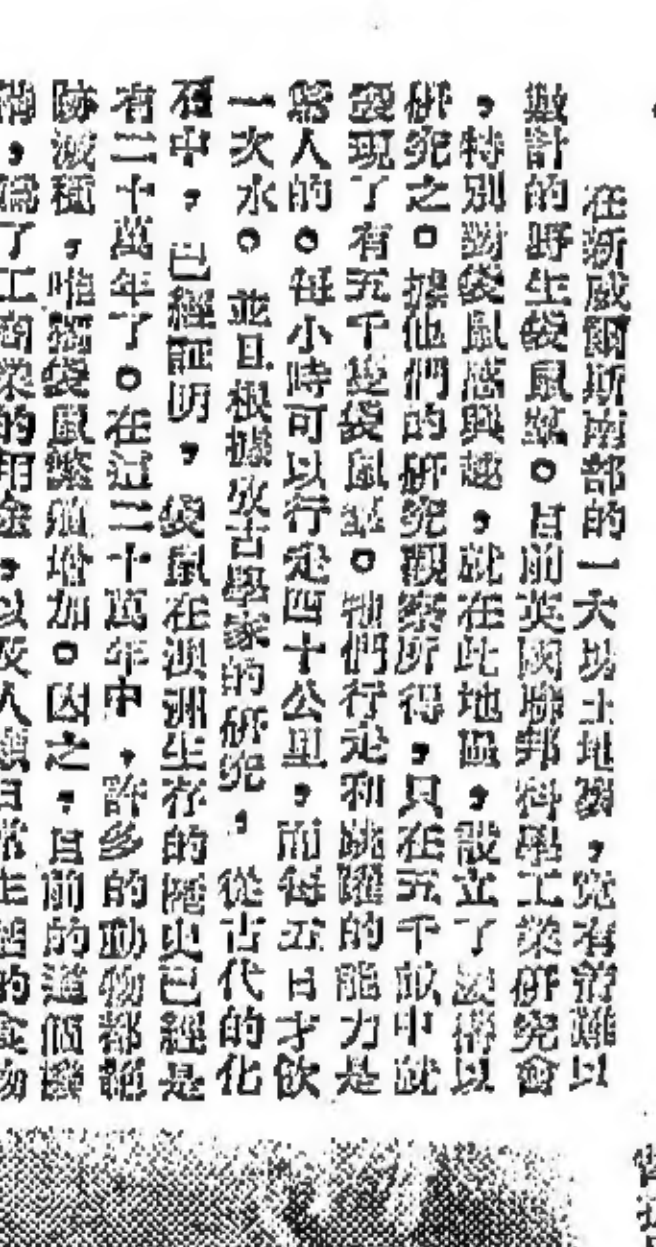 在新威爾斯南部的一大塲土地裏，竟有着難以
數計的野生袋鼠羣。目前英國聯邦科學工業研究會
，特別對袋鼠感興趣，就在此地區，設立了機構以
研究之。據他們的研究觀察所得，只在五千畝中就
發現了有五千隻袋鼠羣。牠們行走和跳躍的能力是
驚人的。每小時可以行走四十公里，而每五日才飲
一次水。並且根據攷古學家的研究，從古代的化
石中，已經証明，袋鼠在澳洲生存的歷史已經是
有二十萬年了。在這二十萬年中，許多的動物都絕
跡滅種，唯獨袋鼠繁殖增加。因之，目前的這個機
構，為了工商業的用途，以及人類日常生活的食物